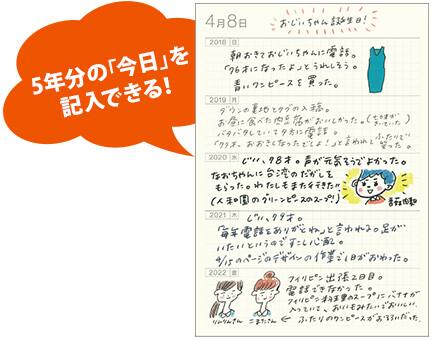 5年分の「今日」を
記入できる!
4月8日
おじいちゃん誕生日!
2018 日
朝おきておじいちゃんに電話。
「76才になったよ」とうれしそう。
青いワンピースを買った。
2019 月
ダウンの裏地とタグの入稿。
お昼に食べた肉豆腐がおいしかった。
バタバタしていて夕方に電話。
「77才。おおきくなったでしょ!」と言われて ふたりで笑った。
2020 水
じいい、78才。声が元気そうでよかった。
なおちゃんに台湾のだがしを
もらった。わたしもまた行きたい!!
(人和園のグリーンピースのスープ!!)
2021 木
じいい、79才。
「毎年電話をありがとね」と言われる。足が
いたいというのですこし心配。
4/15のページのデザインの作業で1日がおわった。
2022 金
フィリピン出張2日目。
電話できなかった。
フィリピン料理のスープにバナナが
入っていて、おいもみたいでおいしい。
ふたりのワンピースがお揃いだった。
りんりんさん
こまたさん